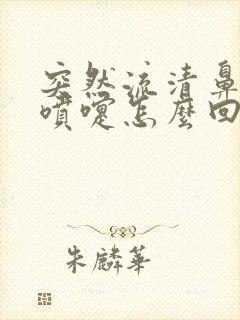 突然流清鼻
噴嚏怎麼回
朱麟華